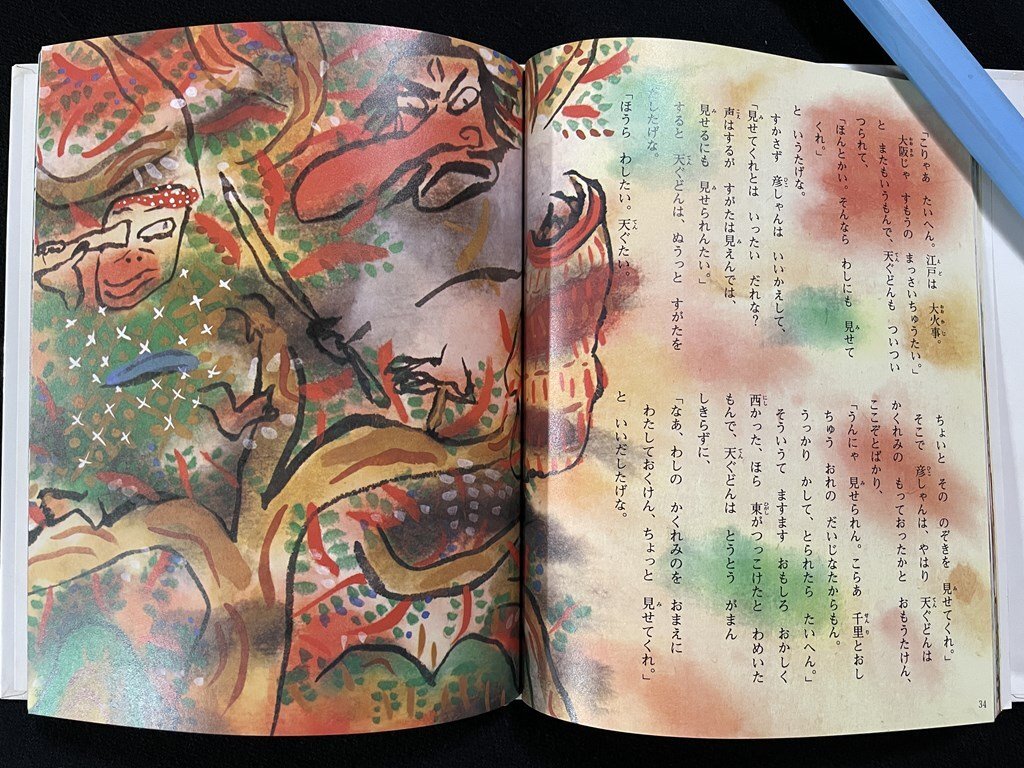 「こりゃあ たいへん。江戸は 大火事。
大阪じゃ すもうの まっさいちゅうたい。」
と またもいうもんで、天ぐどんも ついつい
つられて、
「ほんとかい。そんなら わしにも 見せて
くれ。」
と いうたげな。
すかさず 彦しゃんは いいかえして、
「見せてくれとは いったい だれな?
声はするが すがたは見えんでは、
見せるにも 見せられんたい。」
すると 天ぐどんは、ぬうっと すがたを
だしたげな。
「ほうら わしたい。天ぐたい。
ちょいと その のぞきを 見せてくれ。」
そこで 彦しゃんは、やはり 天ぐどんは
かくれみの もっておったかと おもうたけん、
ここぞとばかり、
「うんにゃ 見せられん。こらあ 千里とおし
ちゅう おれの だいじなたからもん。
うっかり かして、とられたら たいへん。」
そういうて ますます おもしろ おかしく
西かった、ほら 東がつっこけたと わめいた
もんで、天ぐどんは とうとう がまん
しきらずに、
「なあ、わしの かくれみのを おまえに
わたしておくけん、ちょっと 見せてくれ。」
と いいだしたげな。
34